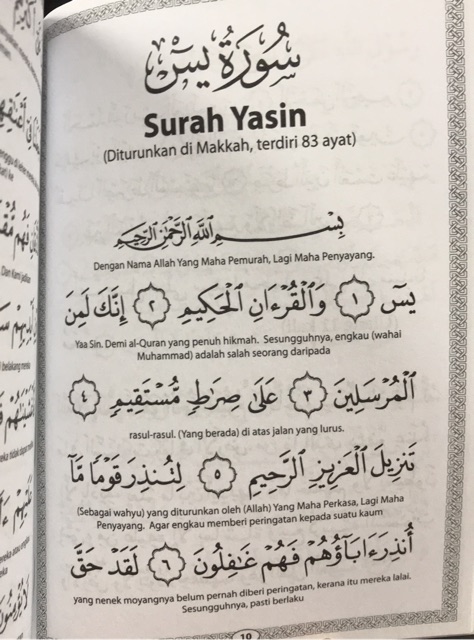 سُورَةُ يسٓ
Surah Yasin
(Diturunkan di Makkah, terdiri 83 ayat)
بِسْمِ اللَّهِ الرَّحْمَٰنِ الرَّحِيمِ
Dengan Nama Allah Yang Maha Pemurah, Lagi Maha Penyayang.
يسٓ ١ وَالْقُرْءَانِ الْحَكِيمِ ٢ إِنَّكَ لَمِنَ
Yaa Sin. Demi al-Quran yang penuh hikmah. Sesungguhnya, engkau (wahai
Muhammad) adalah salah seorang daripada
الْمُرْسَلِينَ ٣ عَلَىٰ صِرَٰطٍ مُّسْتَقِيمٍ ٤
rasul-rasul. (Yang berada) di atas jalan yang lurus.
تَنزِيلَ الْعَزِيزِ الرَّحِيمِ ٥ لِتُنذِرَ قَوْمًا مَّآ
(Sebagai wahyu) yang diturunkan oleh (Allah) Yang Maha Perkasa, Lagi Maha
Penyayang. Agar engkau memberi peringatan kepada suatu kaum
أُنذِرَ ءَابَآؤُهُمْ فَهُمْ غَٰفِلُونَ ٦ لَقَدْ حَقَّ
yang nenek moyangnya belum pernah diberi peringatan, kerana itu mereka lalai.
Sesungguhnya, pasti berlaku
10